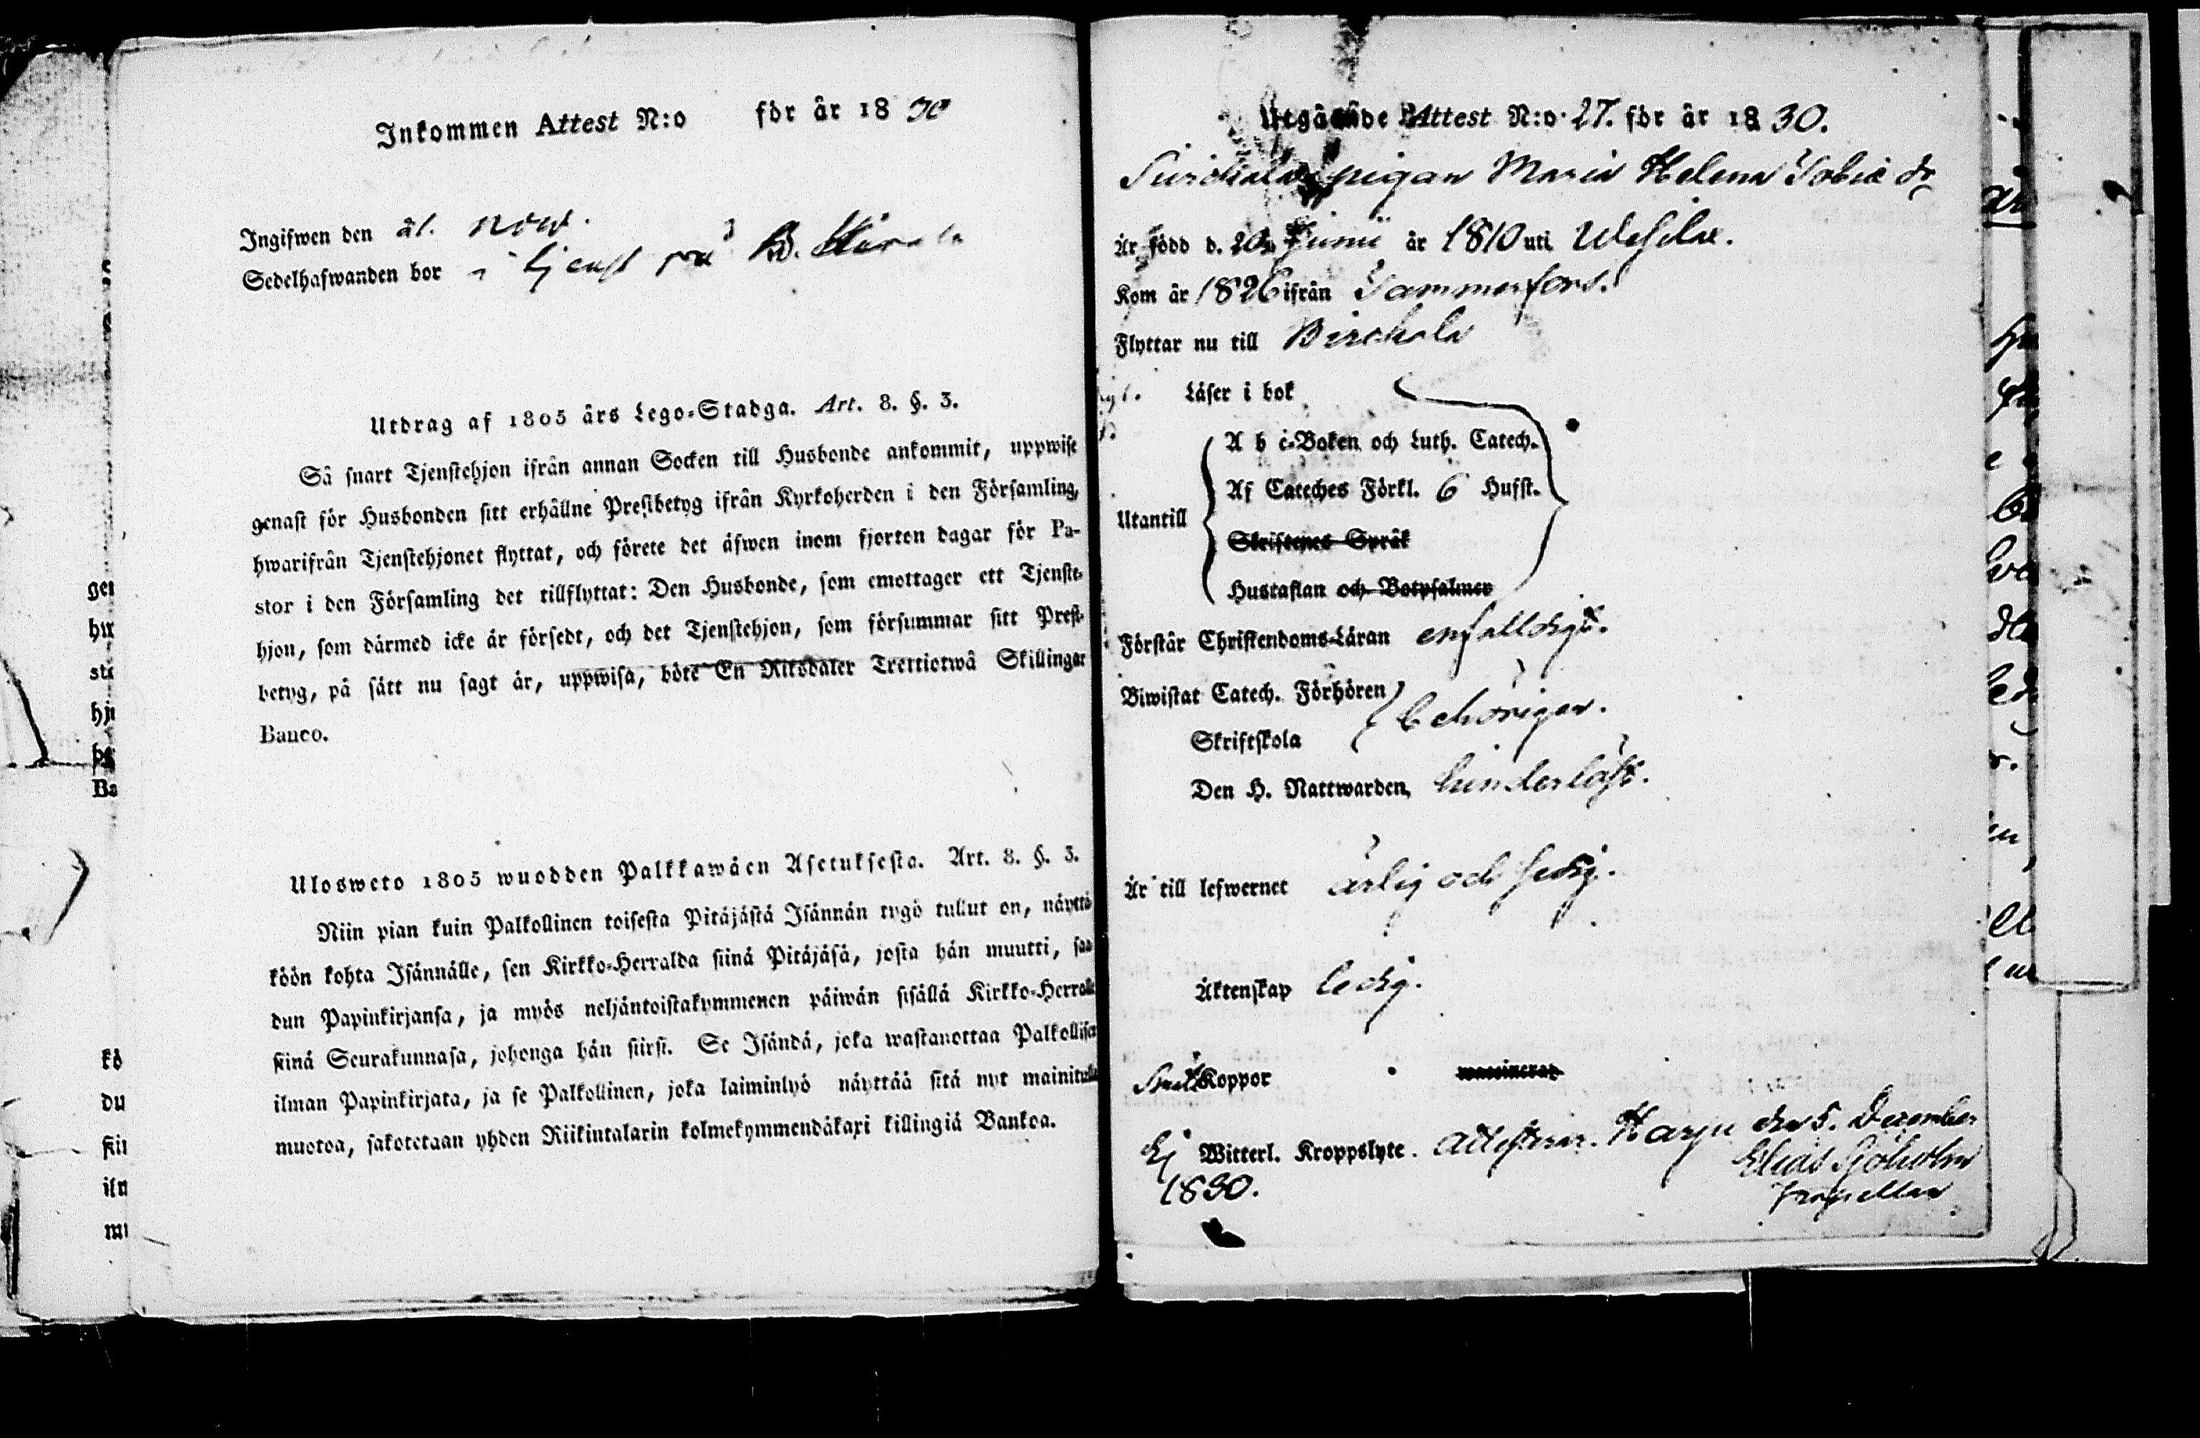 Inkommen Attest N:o för år 1830
Ingifwen den
Sedelhafwanden bor i tjenst på
Utdrag af 1805 års Lego-Stadga. Art. 8. §. 3.
Så snart Tjenstehjon ifrån annan Socken till Husbonde ankommit, uppwise
genast för Husbonden sitt erhållne Prestbetyg ifrån Kyrkoherden i den Församling,
hwarifrån Tjenstehjonet flyttat, och förete det äfwen inom fjorton dagar för Pa-
stor i den Församling det tillflyttat: Den Husbonde, som emottager ett Tjenste-
hjon, som därmed icke är försedt, och det Tjenstehjon, som försummar sitt Prest-
betyg, på sätt nu sagt är, uppwisa, böte En Riksdaler Trettiotwå Skillingar
Banco.
Ulosweto 1805 wuodden Palkkawäen Asetuksesta. Art. 8. §. 3.
Niin pian kuin Palkollinen toisesta Pitäjästä Isännän tygö tullut on, näyttä-
köön kohta Isännälle, sen Kirkko-Herralda siinä Pitäjäsä, josta hän muutti, saa-
dun Papinkirjansa, ja myös neljäntoistakymmenen päiwän sisällä Kirkko-Herralle
siinä Seurakunnasa, johonga hän siirsi. Se Isändä, joka wastanottaa Palkollisen
ilman Papinkirjata, ja se Palkollinen, joka laiminlyö näyttää sitä nyt mainitulla
muotoa, sakotetaan yhden Riikintalarin kolmekymmendäkaxi killingiä Bankoa.
Utgående Attest N:o 27. för år 1830.
pigan Maria Helena Tobiæ dr
Är född d. 20 Junii år 1810 uti
Kom år 1826 ifrån Tammerfors.
Flyttar nu till Birckala
Läser i bok
A b c-Boken och Luth. Catech.
Af Cateches Förkl. 6 Hufst.
Utantill
Skriftenes Språk
Hustaflan och Botpsalmer
Förstår Christendoms-Läran enfalldigt.
Biwistat Catech. Förhören
behörigen.
Skriftskola
Den H. Nattwarden, hinderlöst.
Är till lefwernet ärlig och sedig.
Äktenskap ledig.
Koppor waccinerad
Ej Witterl. Kroppslyte. Attesterar. Harju den 5. December
1830.
Elias Sjöholm